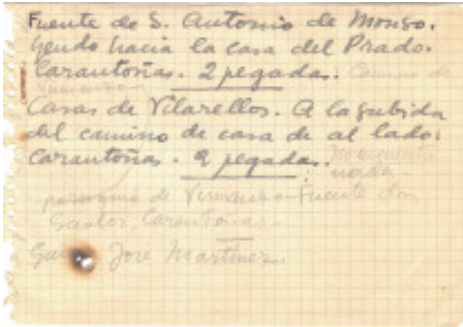 Fuente de S. Antonio de Mongo.
Yendo hacia la casa del Prado.
Carantoñas. 2 pegadas. Camino de
Vimianzo
Casas de Vilarellos. A la subida
del camino de casa de al lado:
Carantoñas. 2 pegadas.
de Vimianzo - Fuente dos
Santos, Carantoñas.
José Martínez.